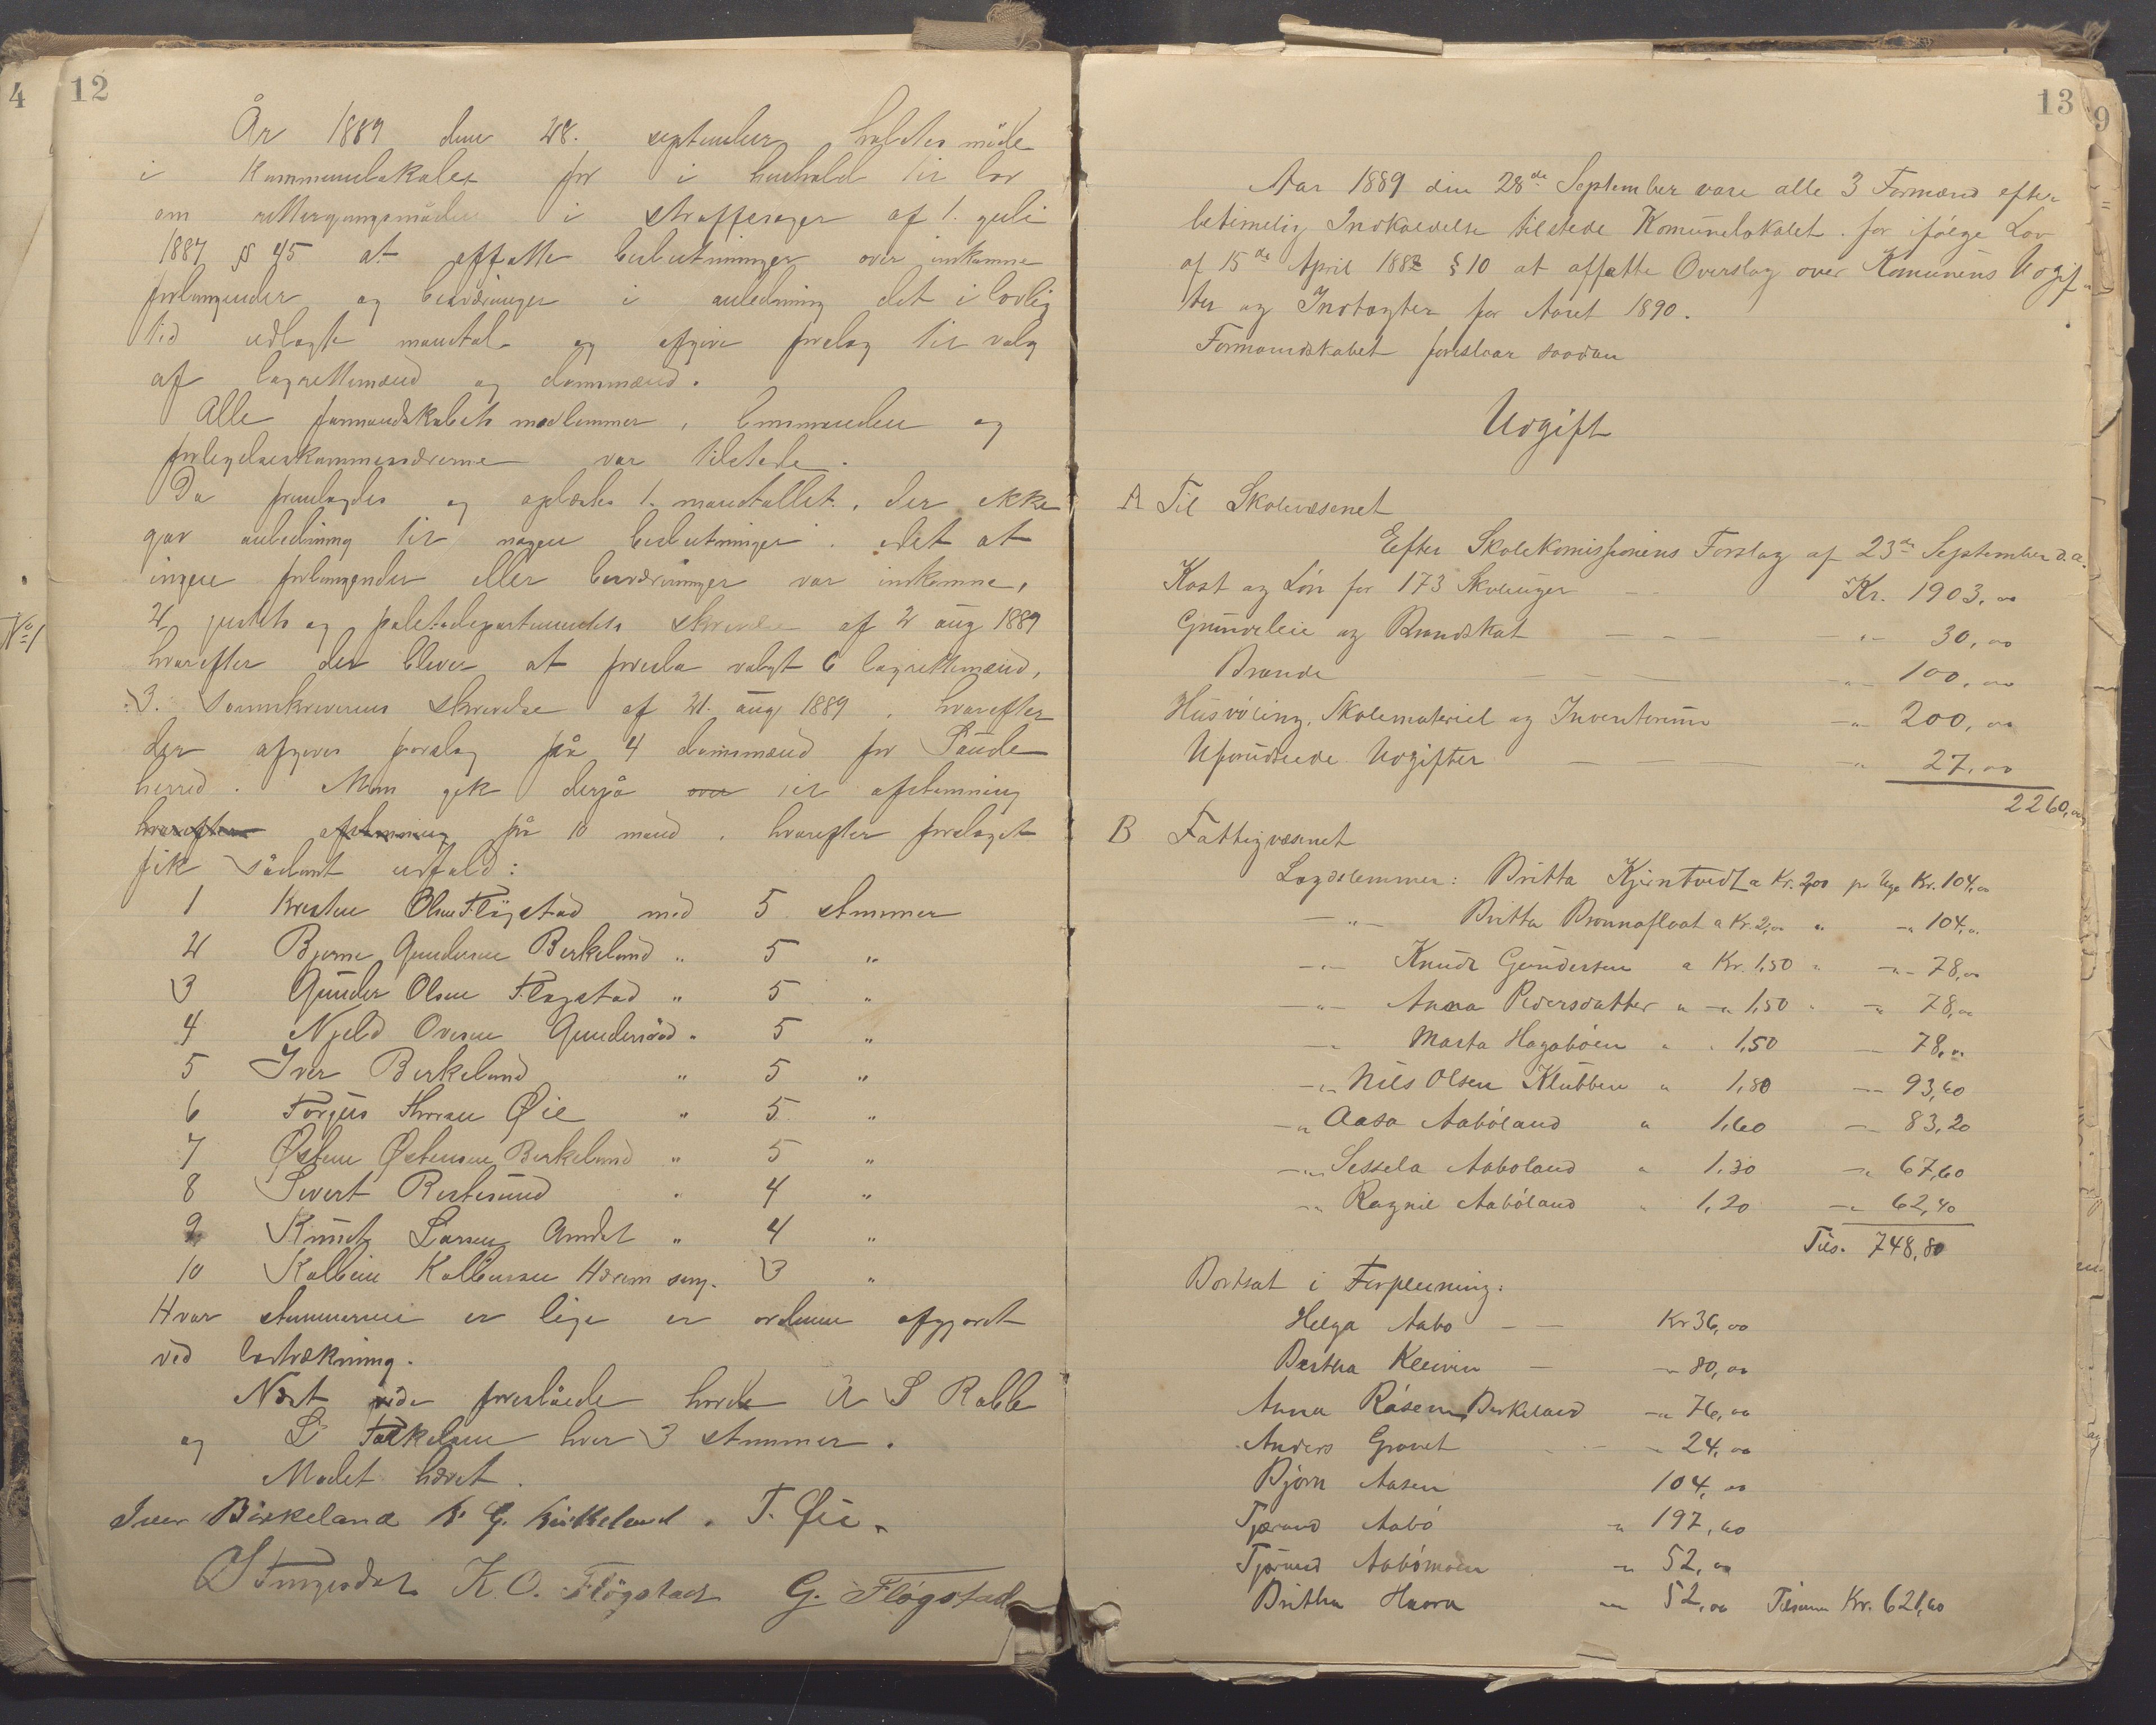 4
12
År 1889 den 28. september holdtes møde
i Kommunelokalet for i henhold til lov
om rettergangsmåden i straffesager af 1. juli
1887 § 45 at affatte beslutninger over indkomne
forlangender og besværinger i anledning det i lovlig
tid udlagte mandtal og afgive forslag til valg
af lagrettemænd og domsmænd.
Alle formandskabets medlemmer, lensmanden og
forligelseskommissærerne var tilstede.
Da fremlagdes og oplæstes 1. mandtallet, der ikke
gav anledning til nogen beslutninger. idet at
ingen forlangender eller besværinger var indkomne,
2, justits og politidepartementets skrivelse af 2 aug 1889
hvorefter der bliver at foreslå valgt 6 lagrettemænd,
3. Sorenskriverens skrivelse af 21. aug 1889, hvorefter
der afgives forslag på 4 domsmænd for Saude
herred. Man gik derpå over til afstemning
hvorefter afstemning på 10 mand, hvorefter forslaget
fik sådant udfald:
1 Kresten Olsen Fløgstad med 5 stemmer
2 Bjerne Gundersen Berkeland " 5 "
3 Gunder Olsen Fløgstad " 5 "
4 Njeld Ovesen Gundersvad " 5 "
5 Iver Berkeland " 5 "
6 Torjus Thorsen Øie " 5 "
7 Østen Østensen Berkeland " 5 "
8 Sivert Restesund " 4 "
9 Knudt Larsen Amdal " 4 "
10 Kolbein Kolbensen Hæreim sag. 3 "
Hvor stemmerne er lige er ordenen afgjordt
ved lodtrækning.
Næst disse foreslåede havde A S Rabbe
og L Torkelsen hver 3 stemmer.
Mødet hævet.
Iver Birkeland B. G. Birkeland. T. Øie.
K. O. Fløgstad G. Fløgstad
No 1
13
9
Aar 1889 den 28de September vare alle 3 Formænd efter
betimelig Indkaldelse tilstede Komunelokalet for ifølge Lov
af 15de April 1882 § 10 at affatte Overslag over Komunens Udgif
ter og Indtægter for Aaret 1890.
Formandskabet foreslaar saadan
Udgift
A Til Skolevæsenet
Efter Skolekomissionens Forslag af 23de September d.a.
Kost og Løn for 173 Skoleuger Kr. 1903,00
Grundleie og Brandskat - - - " 30,00
Brænde - - - " 100,00
Husvøling, Skolemateriel og Inventarium " 200,00
Uforudseede Udgifter - - - " 27,00
2260,00
B Fattigvæsenet
Lægdslemmer: Britta Kjerntvedt a Kr. 2,00 pr Uge Kr. 104,00
-"- Britta Bronnaflaat a Kr. 2,00 " -" 104,00
-"- Knudt Gundersen a Kr. 1,50 " -"- 78,00
-"- Anna Pedersdatter " -" 1,50 " -" 78,00
-" Marta Hagabøen " " 1,50 - 78,00
-"- Nils Olsen Klubben " 1,80 -" 93,60
-" Aasa Aabøland " 1,60 -" 83,20
-"- Sessela Aabøland " 1,30 -" 67,60
-" Ragnil Aabøland " 1,20 -" 62,40
Tils. 748,80
Bortsat i Forpleining:
Helga Aabø - - Kr 36,00
Bertha Kleiven - -" 80,00
Anna Råsen Berkeland -" 76,00
Anders Gravet - - " 24,00
Bjørn Aasen 104,00
Tjærand Aabø -" 197,60
Tjørand Aabømoen -" 52,00
Britha Haara -" 52,00 Tilsamm Kr. 621,60